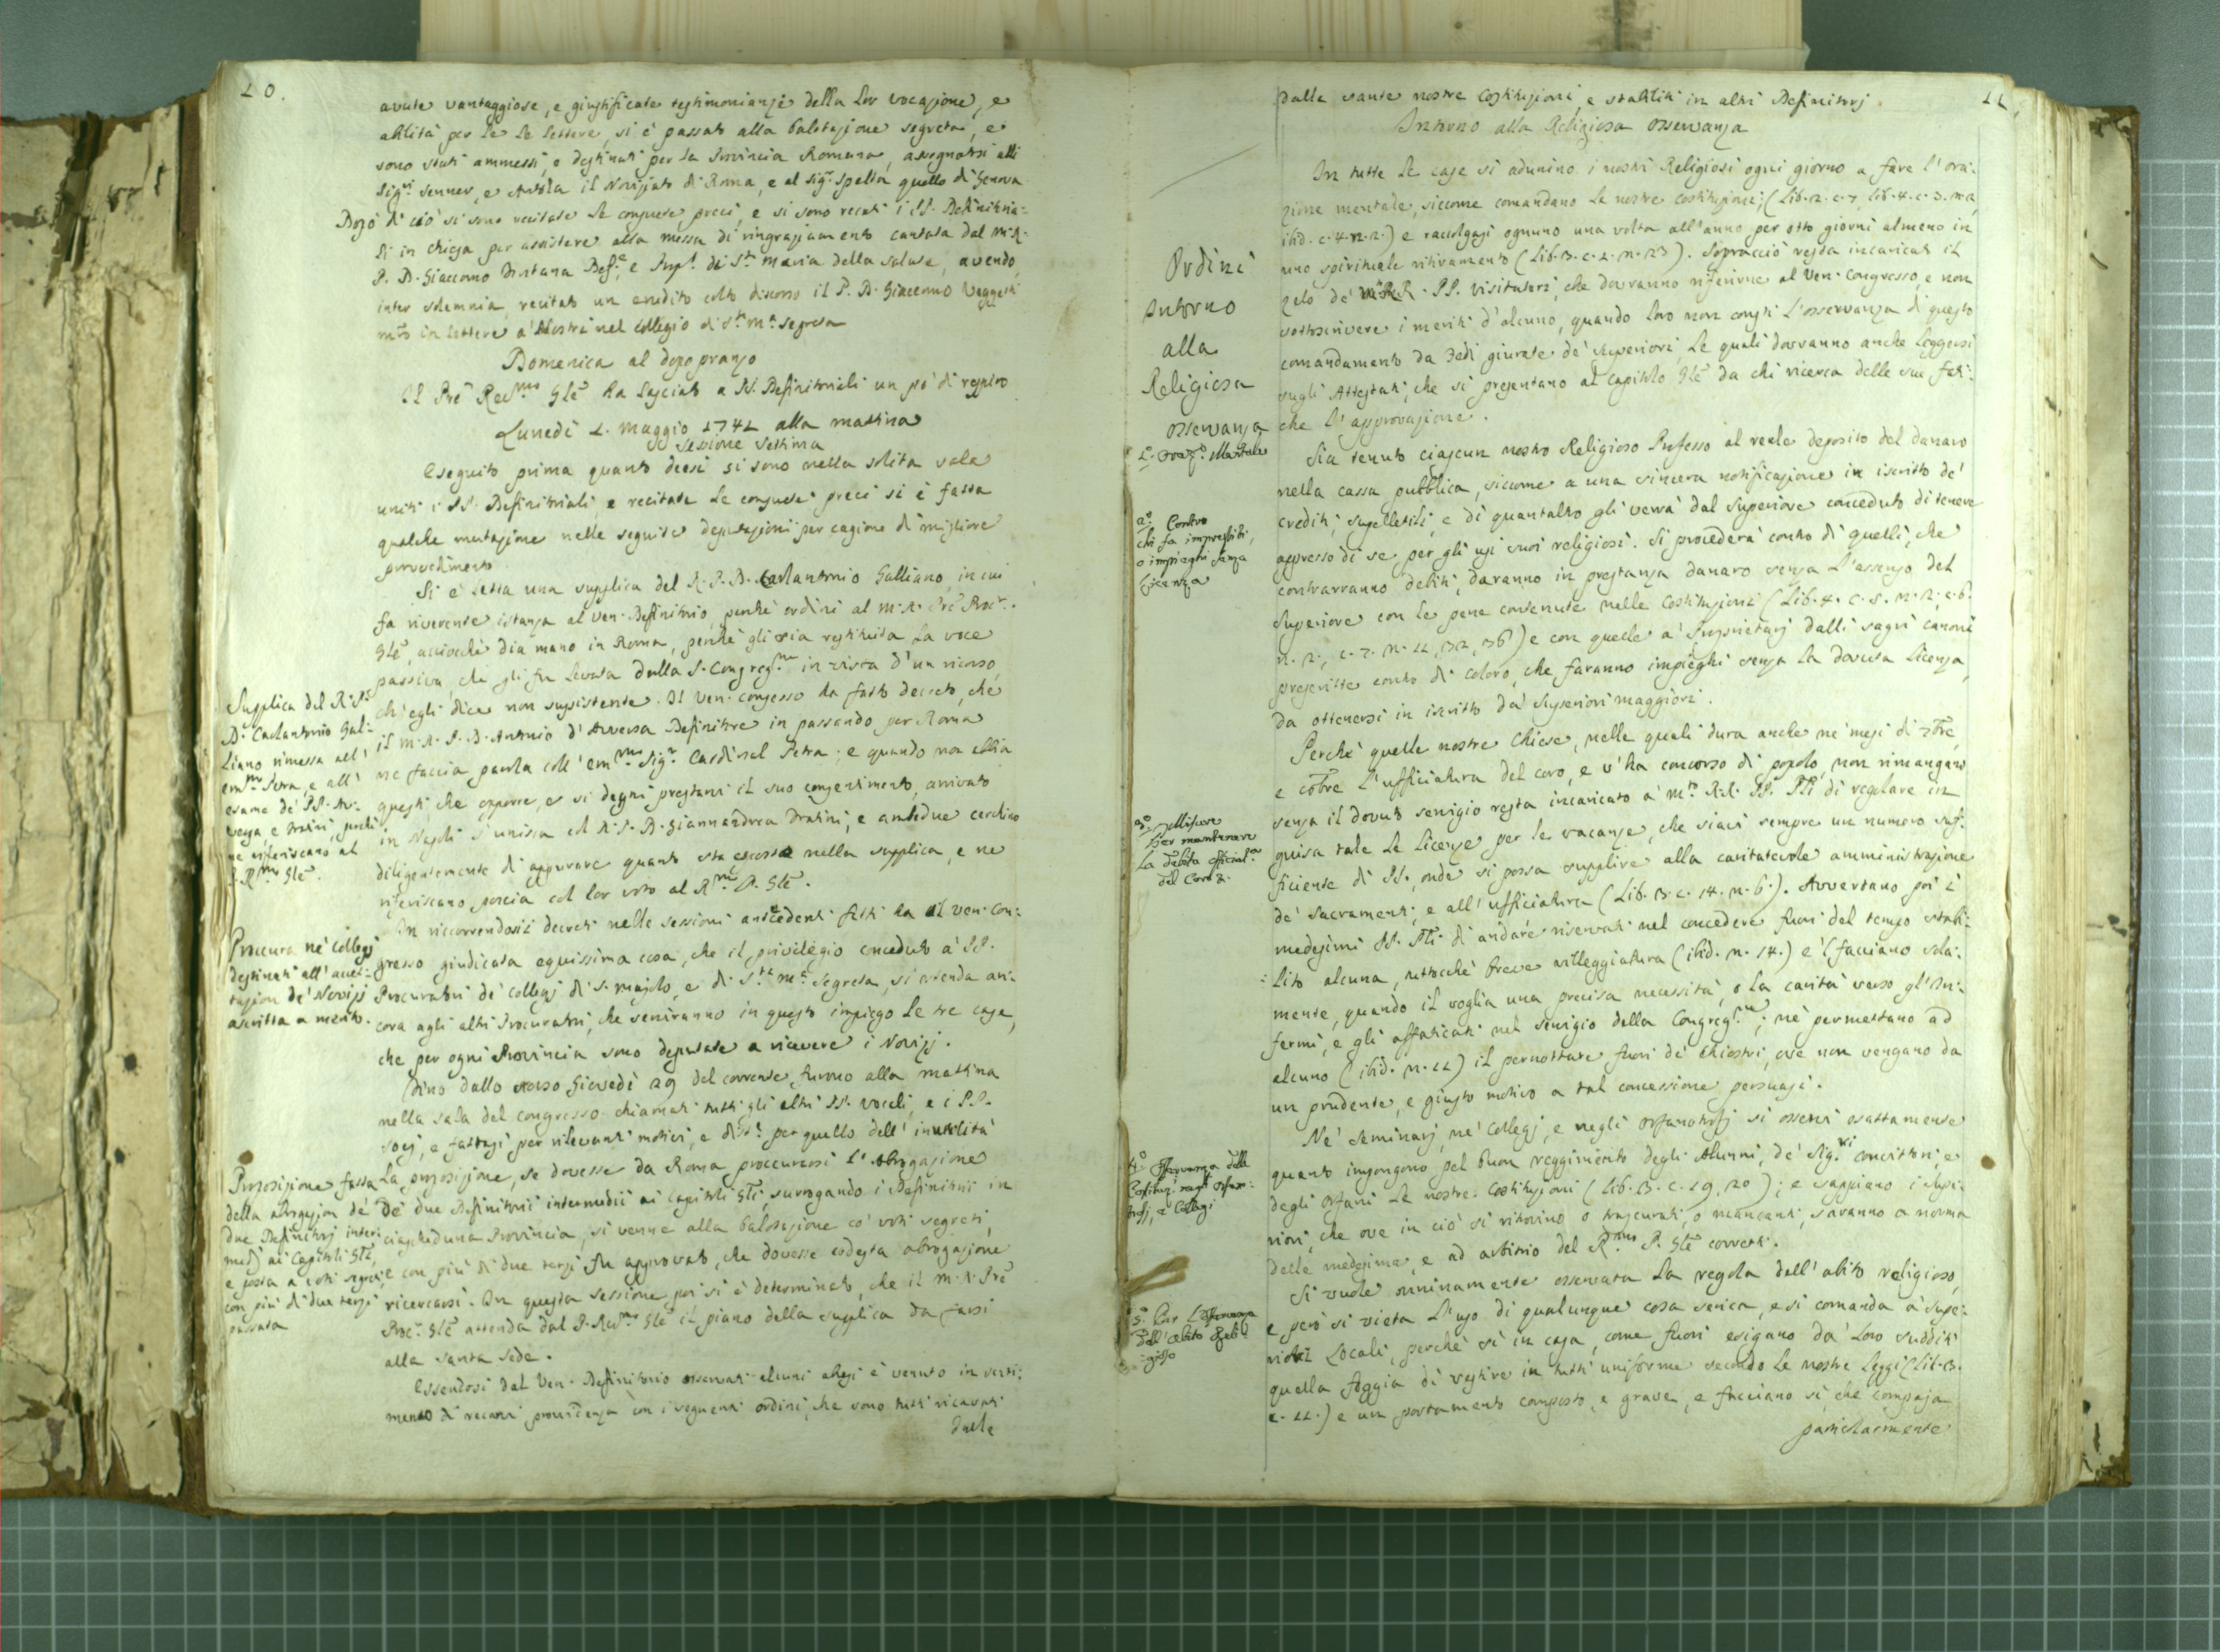 10.
avute vantaggiose, e giustificate testimonianze della lor vocazione, e
abilità per le le lettere, si è passato alla balotazione segreta, e
sono stati ammessi, e destinati per la Provincia Romana, assegnatosi alli
Sig.ri Senner, e il Noviziato di Roma, e al Sig.r Spella quello di Genova.
Dopo di ciò si sono recitate le consuete preci, e si sono recati i PP. Definitoria:
li in chiesa per assistere alla messa di ringraziamento cantata dal M. R.
P. D. Giacomo Def.e, e di S.ta Maria della Salute, avendo,
inter solemnia, recitato un erudito colto discorso il P. D. Giacomo
in lettere a' Nostri nel Collegio di S.ta M.a Segreta
Domenica al dopo pranzo
Il Prē Rev.mo Glē ha lasciato a PP. Definitoriali un pò di respiro
Lunedì 1. Maggio 1741 alla mattina
Sessione settima
Eseguito prima quanto deesi si sono nella solita sala
uniti i PP. Definitoriali, e recitate le consuete preci si è fatta
qualche mutazione nelle seguite deputazioni per cagione di migliore
provvedimento
Si è letta una supplica del R. P. D. Carlantonio Galliano, in cui
fa riverente istanza al Ven. Definitorio, perchè ordini al M. R. Prē Proc.r
Glē, acciocchè dia mano in Roma, perchè gli sia restituita la voce
passiva, che gli fu levata dalla S. Congreg.ne in vista d'un ricorso,
ch'egli dice non sussistente. Il Ven. congresso ha fatto decreto, che
il M. R. P. D. Antonio d'Aversa Definitore in passando per Roma
ne faccia parola coll'em.mo Sig.r Cardinal Petra; e quando non abbia
questi che opporre, e si degni prestarvi il suo consentimento, arrivato
in Napoli s'unisca col R. P. D. Giannandrea Bratini, e ambedue cerchino
diligentemente di appurare quanto sta esposto nella supplica, e ne
riferiscano poscia col lor voto al R.mo P. Glē.
In riccorrendosi i decreti nelle sessioni antecedenti fatti ha il Ven. Con:
gresso giudicata equissima cosa, che il privilegio conceduto a' PP.
Procuratori de' collegj di S. Majolo, e di S.ta M.a Segreta, si estenda an:
cora agli altri Procuratori, che serviranno in questo impiego le tre case,
che per ogni Provincia sono deputate a ricevere i Novizj.
Sino dallo scorso Giovedì 29 del corrente, furono alla mattina
nella sala del congresso chiamati tutti gli altri PP. vocali, e i PP.
socj, e fattasi per rilevanti motivi, e per quello dell'inutilità
la proposizione, se dovesse da Roma proccurarsi l'abrogazione
de' due Definitorii intermedii ai Capitoli Glī, surrogando i Definitorii in
ciascheduna Provincia, si venne alla balotazione co' voti segreti,
e con più di due terzi fu approvato, che dovesse codesta abrogazione
ricercarsi. In questa sessione poi si è determinato, che il M. R. Prē
Proc.r Glē attenda dal P. Rev.mo Glē il piano della supplica da farsi
alla Santa Sede.
Essendosi dal Ven. Definitorio osservati alcuni abusi è venuto in senti:
mento di recarvi providenza con i seguenti ordini, che sono tutti ricavati
dalle
Supplica del R. P.
D. Carlantonio Gal:
liano rimessa all'
em.mo Petra, e all'
esame de' PP. Av:
versa, e Bratini, perchè
ne riferiscano al
P. R.mo Glē.
Procura ne' Collegj
destinati all'accet:
tazion de' Novizj
ascritta a merito.
Proposizione fatta
della abrogazion de'
due Definitorj inter:
medj ai Capitoli Glī,
e posta a voti segreti,
con più di due terzi
passata
11
Dalle sante nostre Costituzioni, e stabiliti in altri Definitorj.
Intorno alla Religiosa Osservanza
In tutte le case si adunino i nostri Religiosi ogni giorno a fare l'ora:
zione mentale, siccome comandano le nostre Costituzioni; (Lib. 2. c. 7, lib. 4. c. 3. n. 2,
ibid. c. 4. n. 2.) e raccolgasi ognuno una volta all'anno per otto giorni almeno in
uno spirituale ritiramento (Lib. 3. c. 2. n. 23). Sopracciò resta incaricato il
zelo de' RR. PP. Visitatori, che dovranno riferirne al Ven. Congresso, e non
sottoscrivere i meriti d'alcuno, quando loro non consti l'osservanza di questo
comandamento da Fedi giurate de' Superiori, le quali dovranno anche leggersi
sugli Attestati, che si presentano al Capitolo Glē da chi ricerca delle sue fati:
che l'approvazione.
Sia tenuto ciascun nostro Religioso Professo al reale deposito del danaro
nella cassa pubblica, siccome a una sincera notificazione in iscritto de'
crediti, supelletili, e di quantaltro gli verrà dal Superiore conceduto di tenere
appresso di se per gli usi suoi religiosi. Si procederà contro di quelli, che
contrarranno debiti, daranno in prestanza danaro senza l'assenso del
Superiore con le pene contenute nelle Costituzioni (Lib. 4. c. 5. n. 2, c. 6.
n. 2., c. 7. n. 11, 32, 36) e con quelle a' Proprietarj dalli sagri canoni
prescritte contro di coloro, che faranno impieghi senza la dovuta licenza,
da ottenersi in iscritto da' Superiori maggiori.
Perchè quelle nostre Chiese, nelle quali dura anche ne' mesi di 7bre,
e 8bre l'ufficiatura del coro, e v'ha concorso di popolo, non rimangano
senza il dovuto servigio resta incaricato a' M.to R.R. PP. di regolare in
guisa tale le licenze per le vacanze, che siavi sempre un numero suf:
ficiente di PP., onde si possa supplire alla caritatevole amministrazione
de' Sacramenti, e all'ufficiatura (Lib. 3. c. 14. n. 6.). Avvertano poi i
medesimi PP. di andare riservati nel concedere fuori del tempo stabi:
lito alcuna, tuttocchè breve villeggiatura (ibid. n. 14.) e 'l facciano sola:
mente, quando il voglia una precisa necessità, o la carità verso gl'In:
fermi, e gli affaticati nel servigio della Congreg.ne; nè permettano ad
alcuno (ibid. n. 11) il pernottare fuori de' chiostri, ove non vengano da
un prudente, e giusto motivo a tal concessione persuasi.
Ne' Seminarj, ne' Collegj, e negli Orfanotrofj si osservi esattamente
quanto impongono pel buon reggimento degli Alunni, de' Sig.ri convittori, e
degli orfani le nostre Costituzioni (Lib. 3. c. 19, 20); e sappiano i Supe:
riori, che ove in ciò si ritrovino o trascurati, o mancanti, saranno a norma
delle medesime, e ad arbitrio del R.mo P. Glē corretti.
Si vuole onninamente osservata la regola dell'abito religioso,
e però si vieta l'uso di qualunque cosa serica, e si comanda a' Supe:
riori Locali, perchè sì in casa, come fuori esigano da' loro sudditi
quella foggia di vestire in tutti uniforme secondo le nostre leggi (Lib. 3.
c. 11.) e un portamento composto, e grave, e facciano sì, che compaja
particolarmente
Ordini
Intorno
alla
Religiosa
osservanza
1.o Oraz.e Mentale
2.o Contro
chi fa imprestiti,
o impieghi senza
licenza
3.o
Per mantenere
la debita
del Coro &.
4.o Osservanza delle
Costituz. negli Orfano:
trofj, e Collegj
5.o Per l'osservanza
dell'abito Reli:
gioso